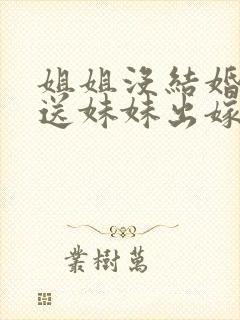 姐姐沒結婚
送妹妹出嫁
業樹萬